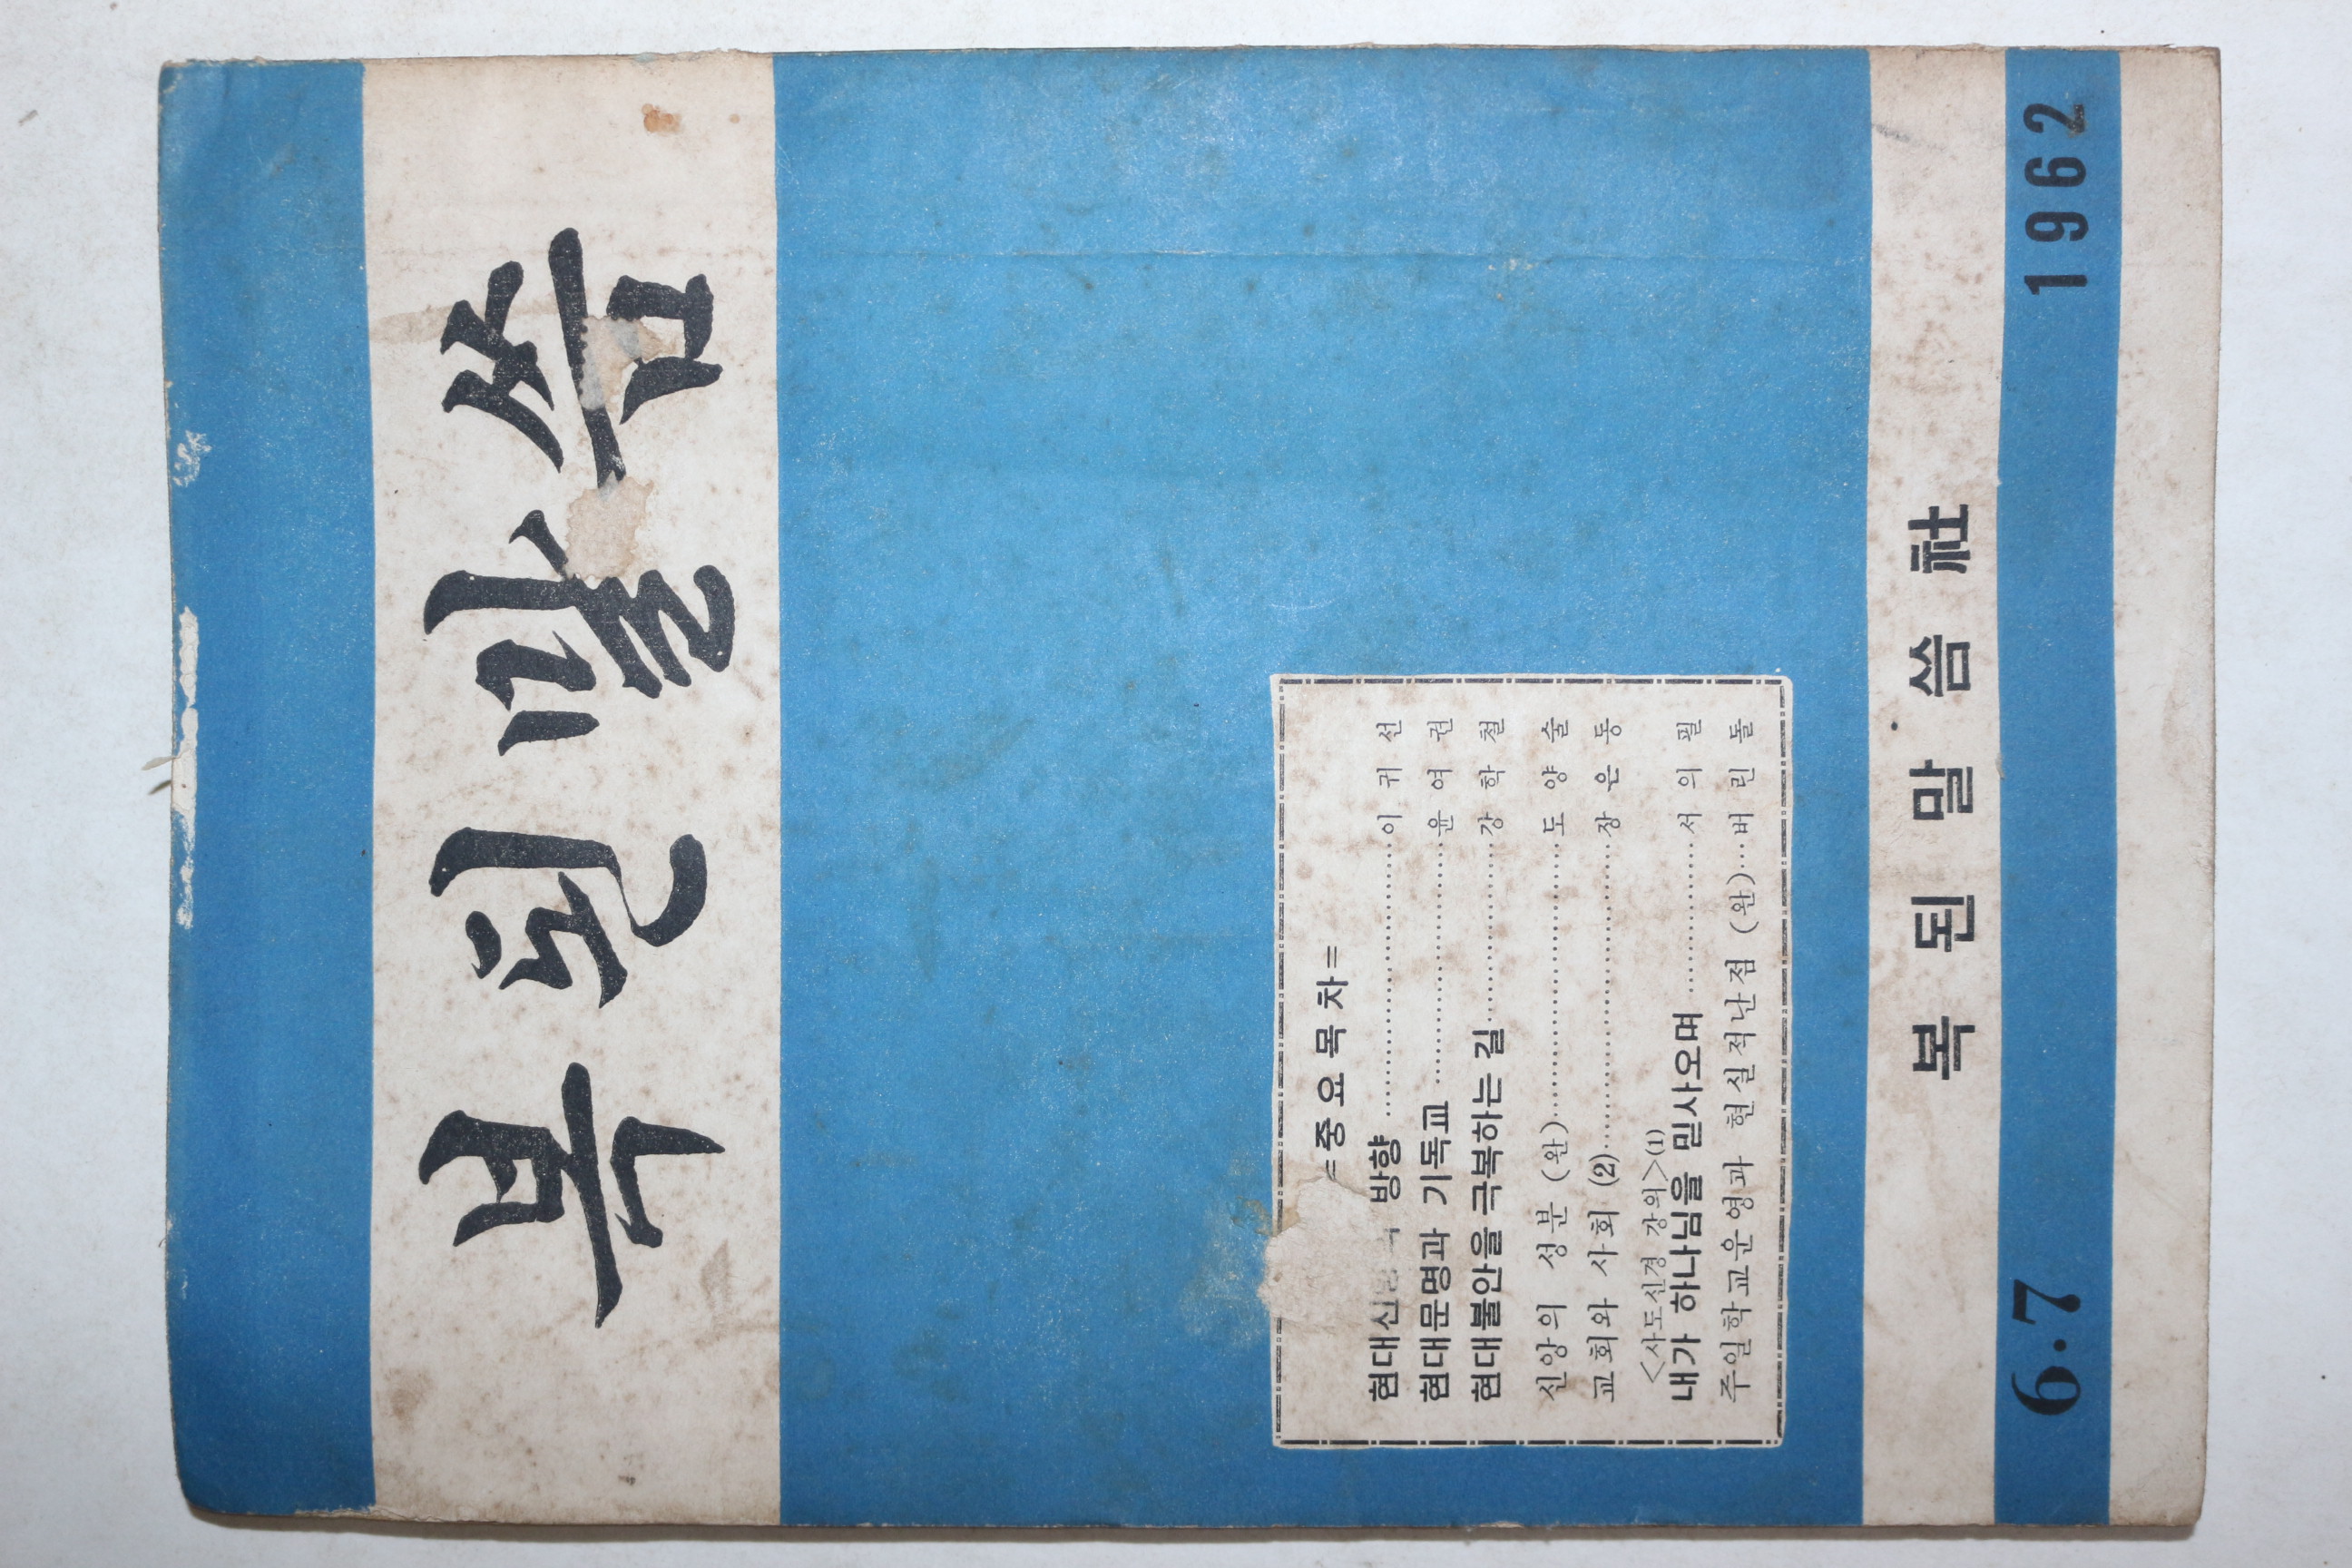 복된말씀
=중요목차=
현대신 방향 ……………………… 이귀선
현대문명과 기독교 ……………………… 윤여권
현대불안을 극복하는 길 ……………… 강학철
신앙의 성분 (완) ……………………… 도양술
교회와 사회 (2) ……………………… 장은동
<사도신경 강의>(1)
내가 하나님을 믿사오며 ……………… 서의필
주일학교운영과 현실적난점 (완)… 버린돌
복된말씀社
6·7 1962